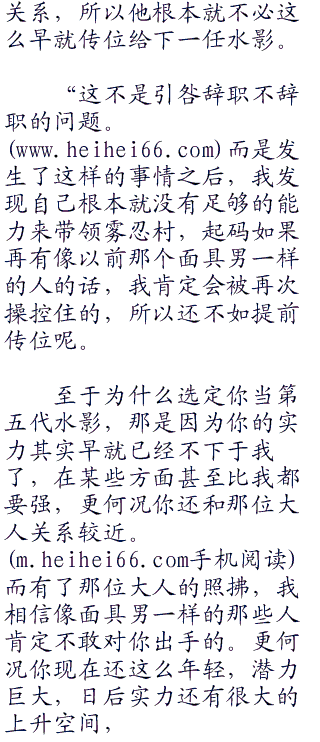 关系，所以他根本就不必这
么早就传位给下一任水影。
“这不是引咎辞职不辞
职的问题。
(www.heihei66.com)而是发
生了这样的事情之后，我发
现自己根本就没有足够的能
力来带领雾忍村，起码如果
再有像以前那个面具男一样
的人的话，我肯定会被再次
操控住的，所以还不如提前
传位呢。
至于为什么选定你当第
五代水影，那是因为你的实
力其实早就已经不下于我
了，在某些方面甚至比我都
要强，更何况你还和那位大
人关系较近。
(m.heihei66.com手机阅读)
而有了那位大人的照拂，我
相信像面具男一样的那些人
肯定不敢对你出手的。更何
况你现在还这么年轻，潜力
巨大，日后实力还有很大的
上升空间，